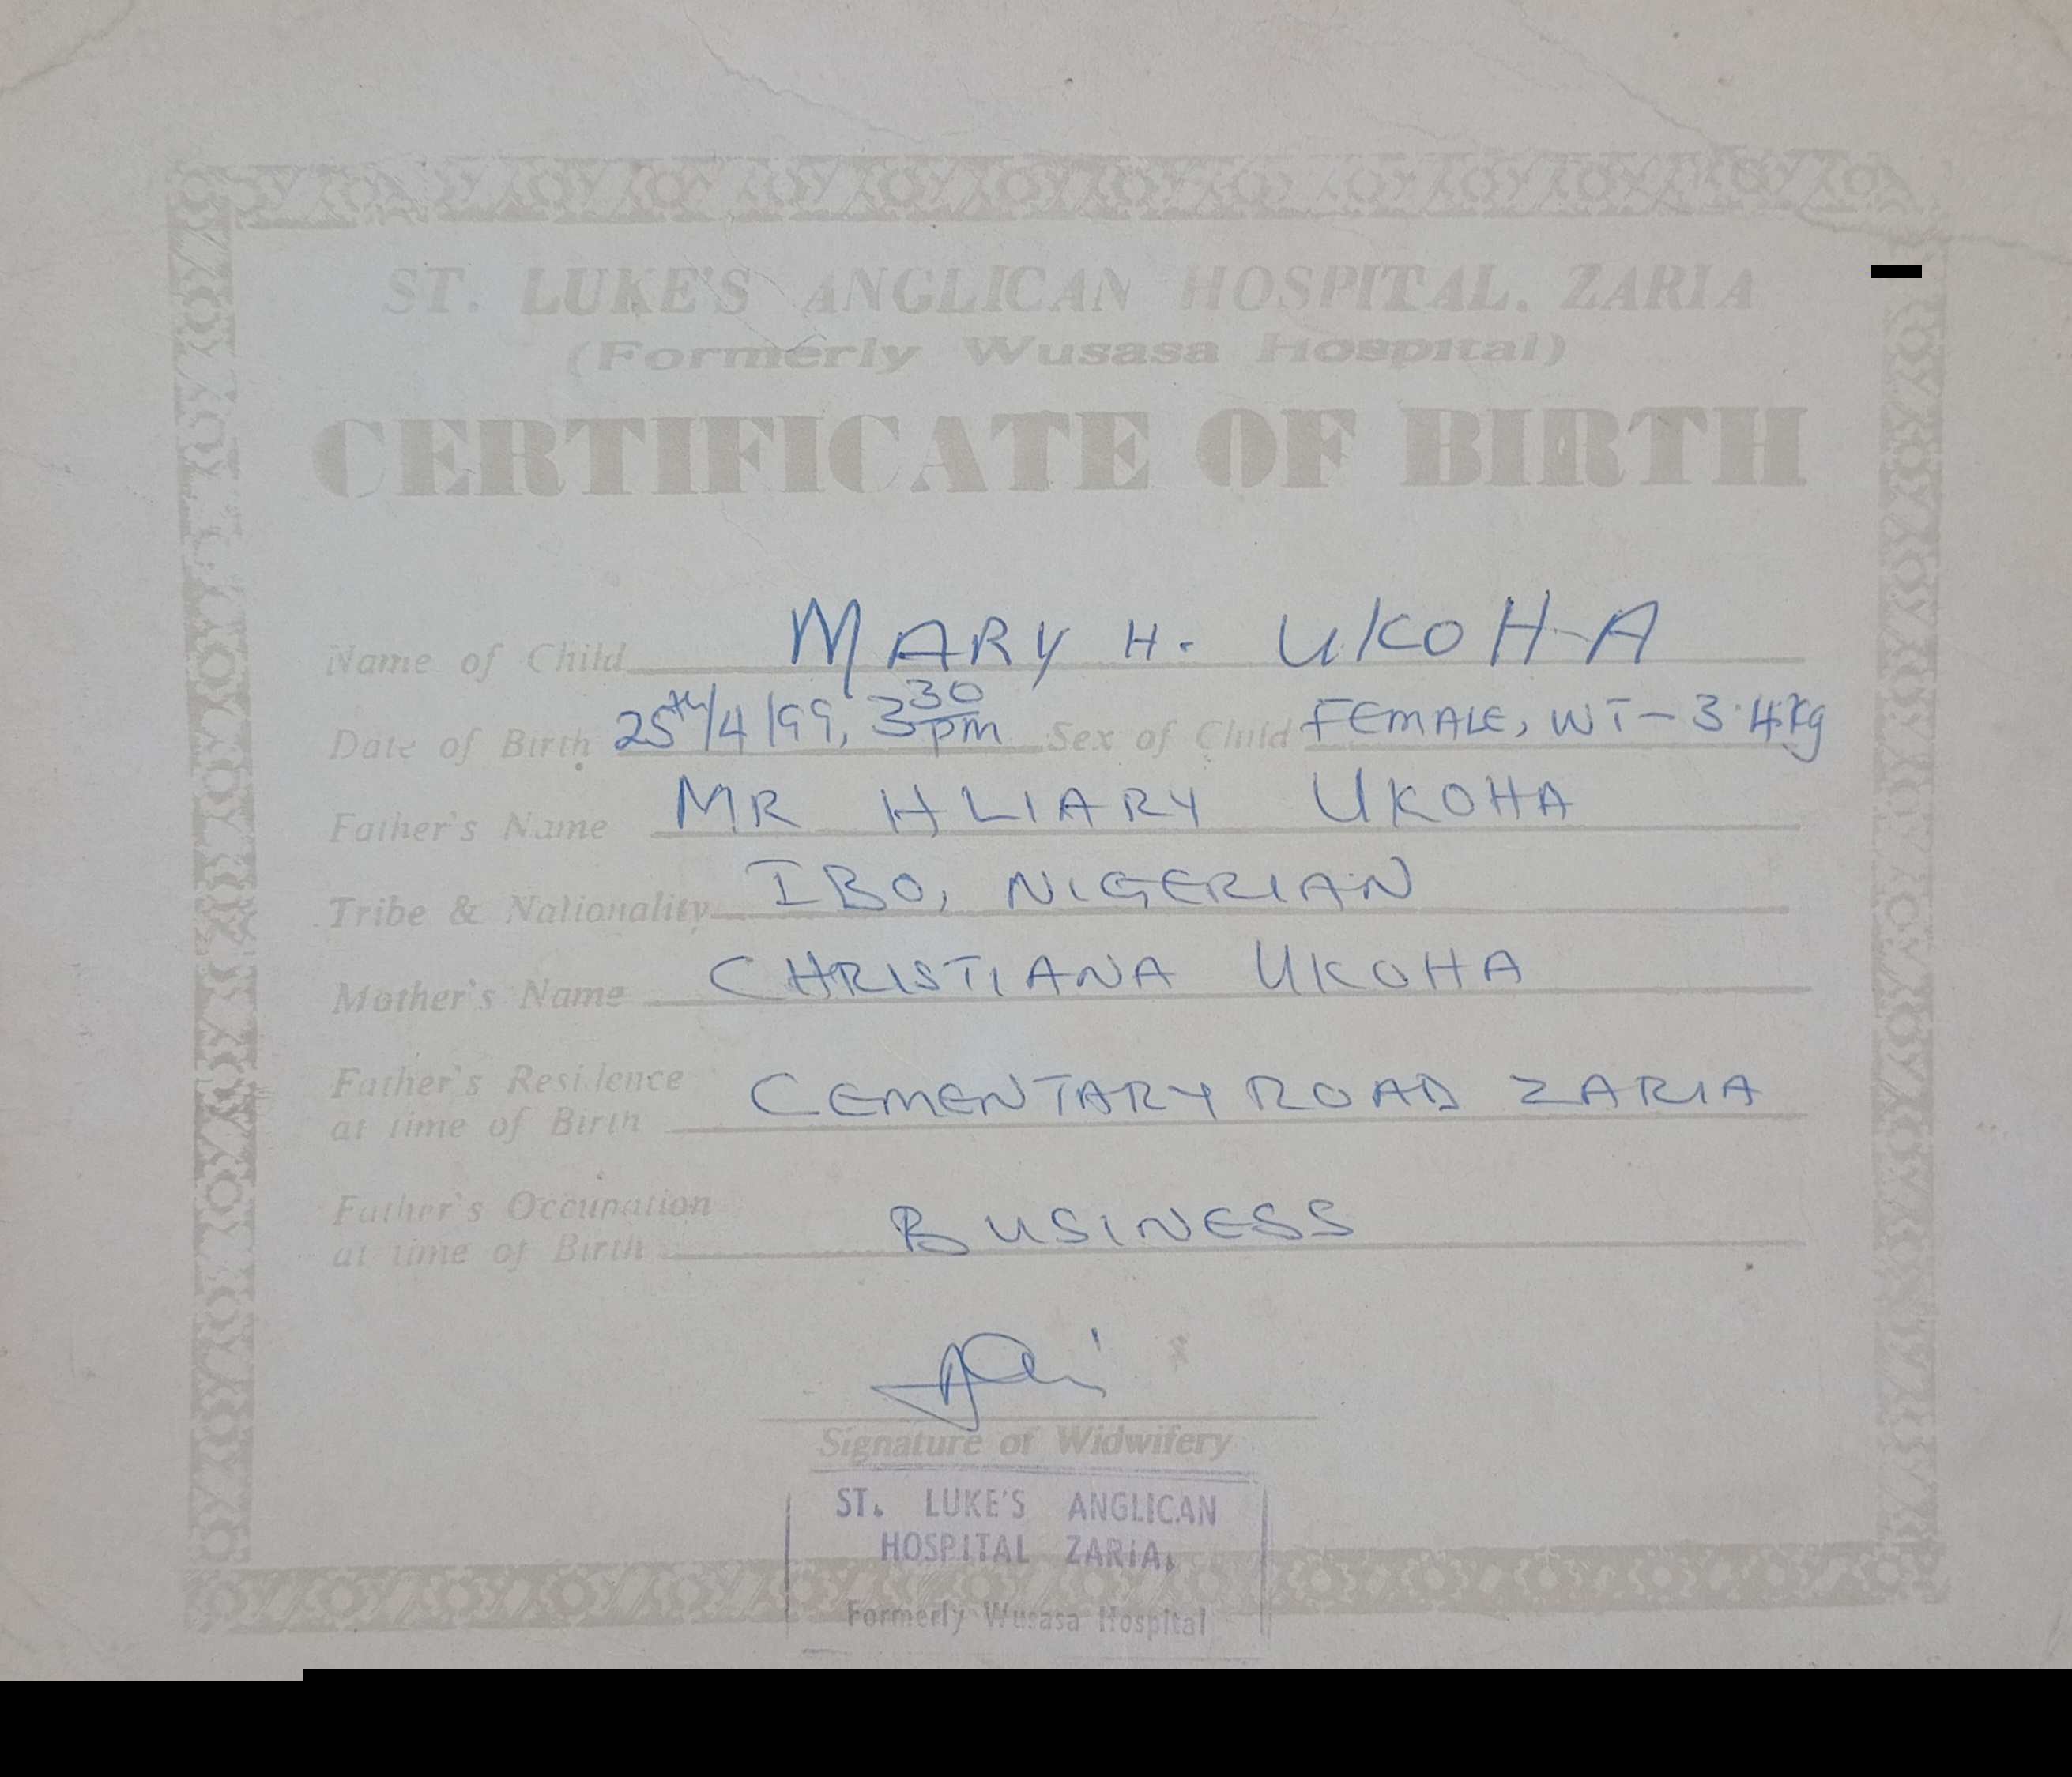 ST. LUKE'S ANGLICAN HOSPITAL. ZARIA
(Formerly Wusasa Hospital)
CERTIFICATE OF BIRTH
Name of Child MARY H. UKOHA
Date of Birth 25th/4/99, 3 30 pm Sex of Child FEMALE, WT - 3.4kg
Father's Name MR HLIARY UKOHA
Tribe & Nationality IBO, NIGERIAN
Mother's Name CHRISTIANA UKOHA
Father's Residence
at time of Birth CEMENTARY ROAD ZARIA
Father's Occupation
at time of Birth BUSINESS
Signature of Widwifery
ST. LUKE'S ANGLICAN
HOSPITAL ZARIA.
Formerly Wusasa Hospital